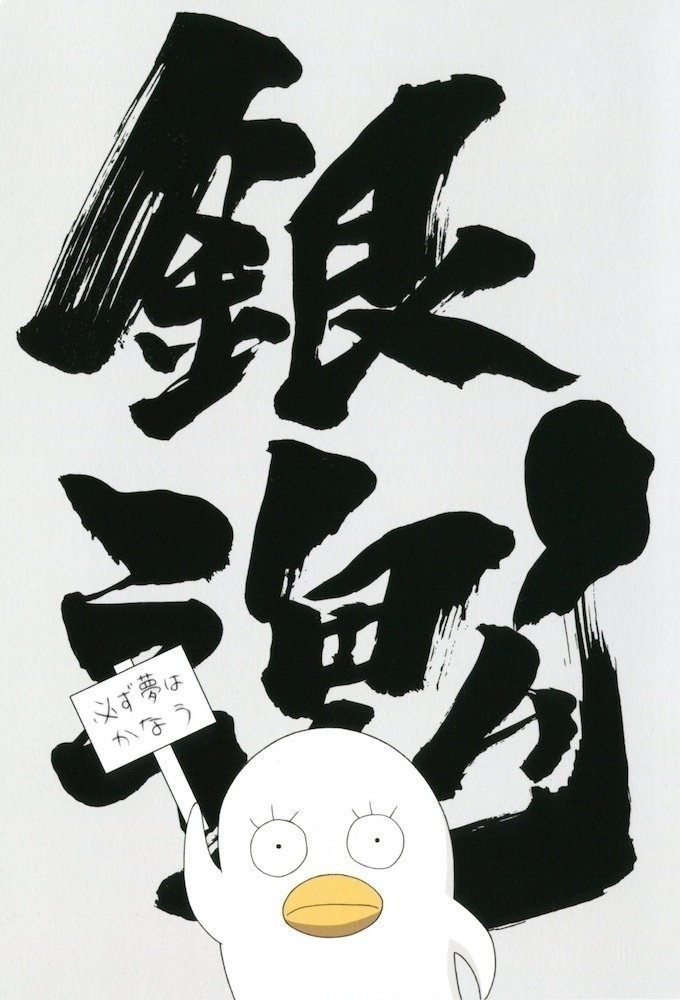 銀
魂
必ず夢は
かなう